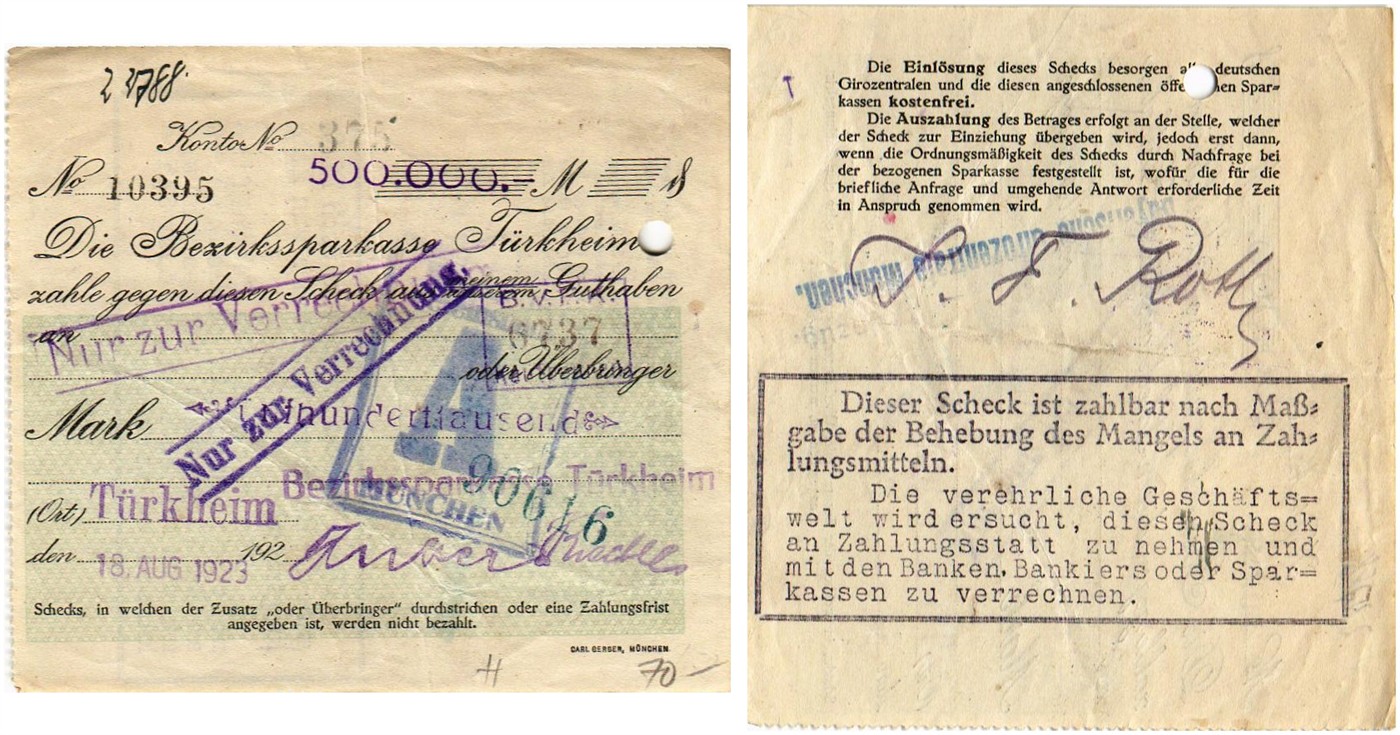 2 2788.
Konto No 375
No 10395 500.000.- M ₰
Die Bezirkssparkasse Türkheim
zahle gegen diesen Scheck aus meinem unserem Guthaben
an
Nur zur Verrechnung
Nur zur Verrechnung.
6737
oder Überbringer
Mark fünfhunderttausend
A
MÜNCHEN
90616
Bezirkssparkasse Türkheim
(Ort) Türkheim
den 18. AUG 1923 192
Schecks, in welchen der Zusatz „oder Überbringer“ durchstrichen oder eine Zahlungsfrist
angegeben ist, werden nicht bezahlt.
CARL GERBER, MÜNCHEN.
H 70 –
Die Einlösung dieses Schecks besorgen deutschen
Girozentralen und die diesen angeschlossenen Spar=
kassen kostenfrei.
Die Auszahlung des Betrages erfolgt an der Stelle, welcher
der Scheck zur Einziehung übergeben wird, jedoch erst dann,
wenn die Ordnungsmäßigkeit des Schecks durch Nachfrage bei
der bezogenen Sparkasse festgestellt ist, wofür die für die
briefliche Anfrage und umgehende Antwort erforderliche Zeit
in Anspruch genommen wird.
Bayerische Girozentrale München.
Roth
Dieser Scheck ist zahlbar nach Maß=
gabe der Behebung des Mangels an Zah=
lungsmitteln.
Die verehrliche Geschäfts=
welt wird ersucht, diesen Scheck
an Zahlungsstatt zu nehmen und
mit den Banken, Bankiers oder Spar=
kassen zu verrechnen.